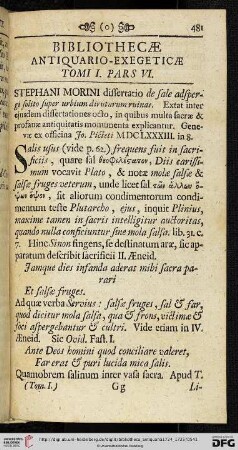 (0)
481
BIBLIOTHECÆ
ANTIQUARIO-EXEGETICÆ
TOMI I. PARS VI.
STEPHANI MORINI dissertatio de sale adsper-
gi solito super urbium dirutarum ruinas. Extat inter
ejusdem dissertationes octo, in quibus multa sacræ &
profanæ antiquitatis monumenta explicantur. Gene-
væ ex officina Jo. Pictets MDCLXXXIII. in 8.
Salis usus (vide p. 62.) frequens fuit in sacri-
ficiis, quare sal θεοφιλέστατον, Diis carissi-
mum vocavit Plato, & notæ molæ salsæ &
salsæ fruges veterum, unde licet sal τῶν ἄλλων ὄ-
ψων ὄψον, sit aliorum condimentorum condi-
mentum teste Plutarcho, ejus, inquit Plinius,
maxime tamen in sacris intelligitur auctoritas,
quando nulla conficiuntur sine mola salsa. lib. 31. c.
7. Hinc Sinon fingens, se destinatum aræ, sic ap-
paratum describit sacrificii II. Æneid.
Jamque dies infanda aderat mihi sacra pa-
rari
Et salsæ fruges.
Ad quæ verba Servius: salsæ fruges, sal & far,
quod dicitur mola salsa, qua & frons, victimæ &
foci aspergebantur & cultri. Vide etiam in IV.
Æneid. Sic Ovid. Fast. I.
Ante Deos homini quod conciliare valeret,
Far erat & puri lucida mica salis.
Quamobrem salinum inter vasa sacra. Apud T.
(Tom. I.) G g Li-
UNIVERSITÄTS-
BIBLIOTHEK
HEIDELBERG
© Universitätsbibliothek Heidelberg
gefördert durch die
DFG